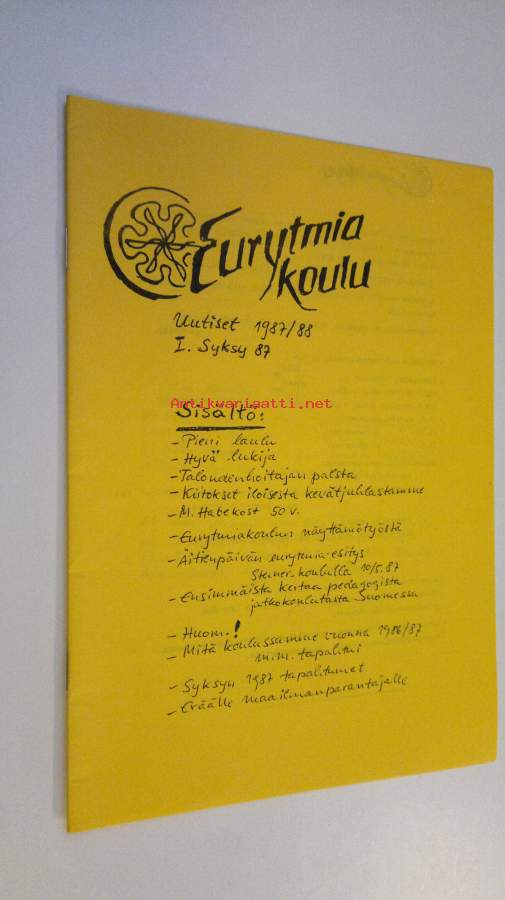 Eurytmia
koulu
Uutiset 1987/88
I. Syksy 87
Antikvariaatti.net
Sisältö:
- Pieni laulu
- Hyvä lukija
- Taloudenhoitajan palsta
- Kiitokset iloisesta kevätjuhlastamme
- M. Habekost 50 v.
- Eurytmiakoulun näyttämötyöstä
- Äitienpäivän eurytmia-esitys
Steiner-koululla 10/5.87
- Ensimmäistä kertaa pedagogista
jatkokoulutusta Suomessa
- Huom.!
- Mitä koulussamme vuonna 1986/87
m.m. tapahtui
- Syksyn 1987 tapahtumat
- Eräälle maailmanparantajalle